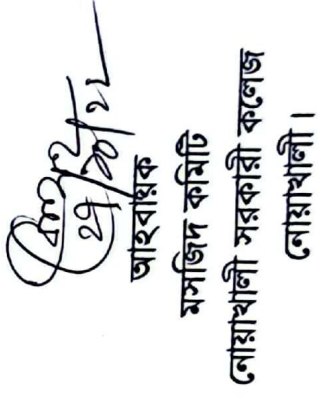 আহবায়ক
মসজিদ কমিটি
নোয়াখালী সরকারী কলেজ
নোয়াখালী।